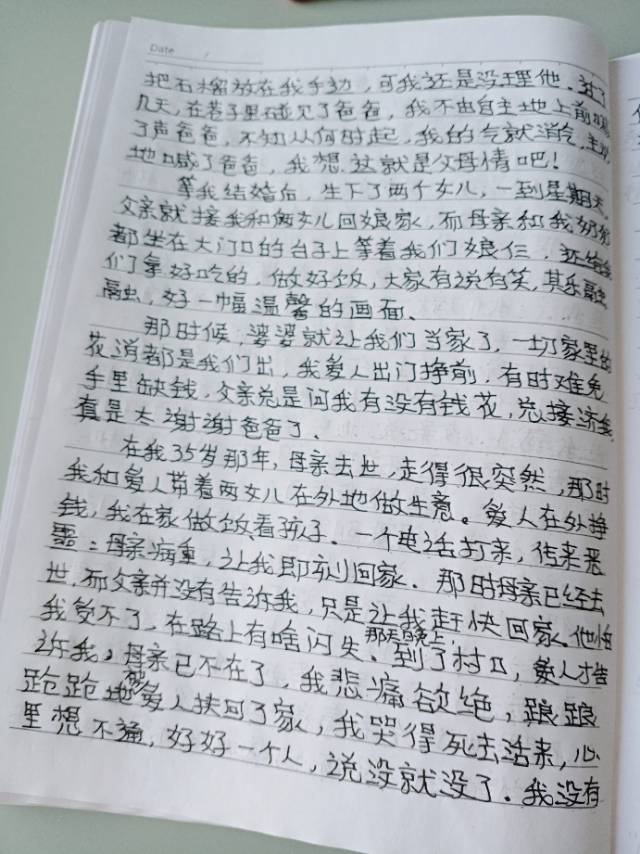 Date
把石榴放在我手边，可我还是没理他。过了
几天，在巷子里碰见了爸爸，我不由自主地上前喊
了声爸爸，不知从何时起，我的气就消气，主动
地喊了爸爸，我想这就是父母情吧！
等我结婚后，生下了两个女儿，一到星期天，
父亲就接我和俩女儿回娘家，而母亲和我奶奶
都坐在大门口的台子上等着我们娘仨，还给我
们拿好吃的，做好饭，大家有说有笑，其乐融
融，好一幅温馨的画面。
那时候，婆婆就让我们当家了，一切家里的
花消都是我们出，我爱人出门挣前，有时难免
手里缺钱，父亲总是问我有没有钱花，总接济我
真是太谢谢爸爸了。
在我35岁那年，母亲去世，走得很突然，那时
我和爱人带着两女儿在外地做生意。爱人在外挣
钱，我在家做饭看孩子。一个电话打来，传来恶
噩：母亲病重，让我即刻回家。那时母亲已经去
世，而父亲并没有告诉我，只是让我赶快回家。他怕
我受不了，在路上有啥闪失。那天晚上，到了村口，爱人才告
诉我，母亲已不在了，我悲痛欲绝，踉踉
跄跄地被爱人扶回了家，我哭得死去活来，心
里想不通，好好一个人，说没就没了。我没有